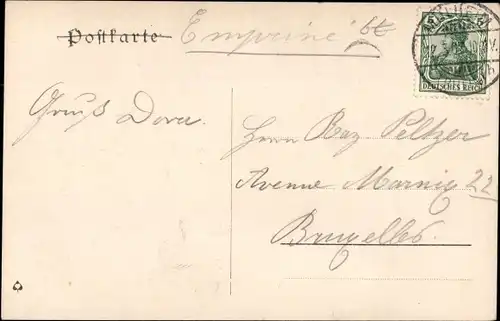 Postkarte
DEUTSCHES REICH
Gruß Dora.
Herrn Ray Peltzer
Avenue Marnix 22
Bruxelles.